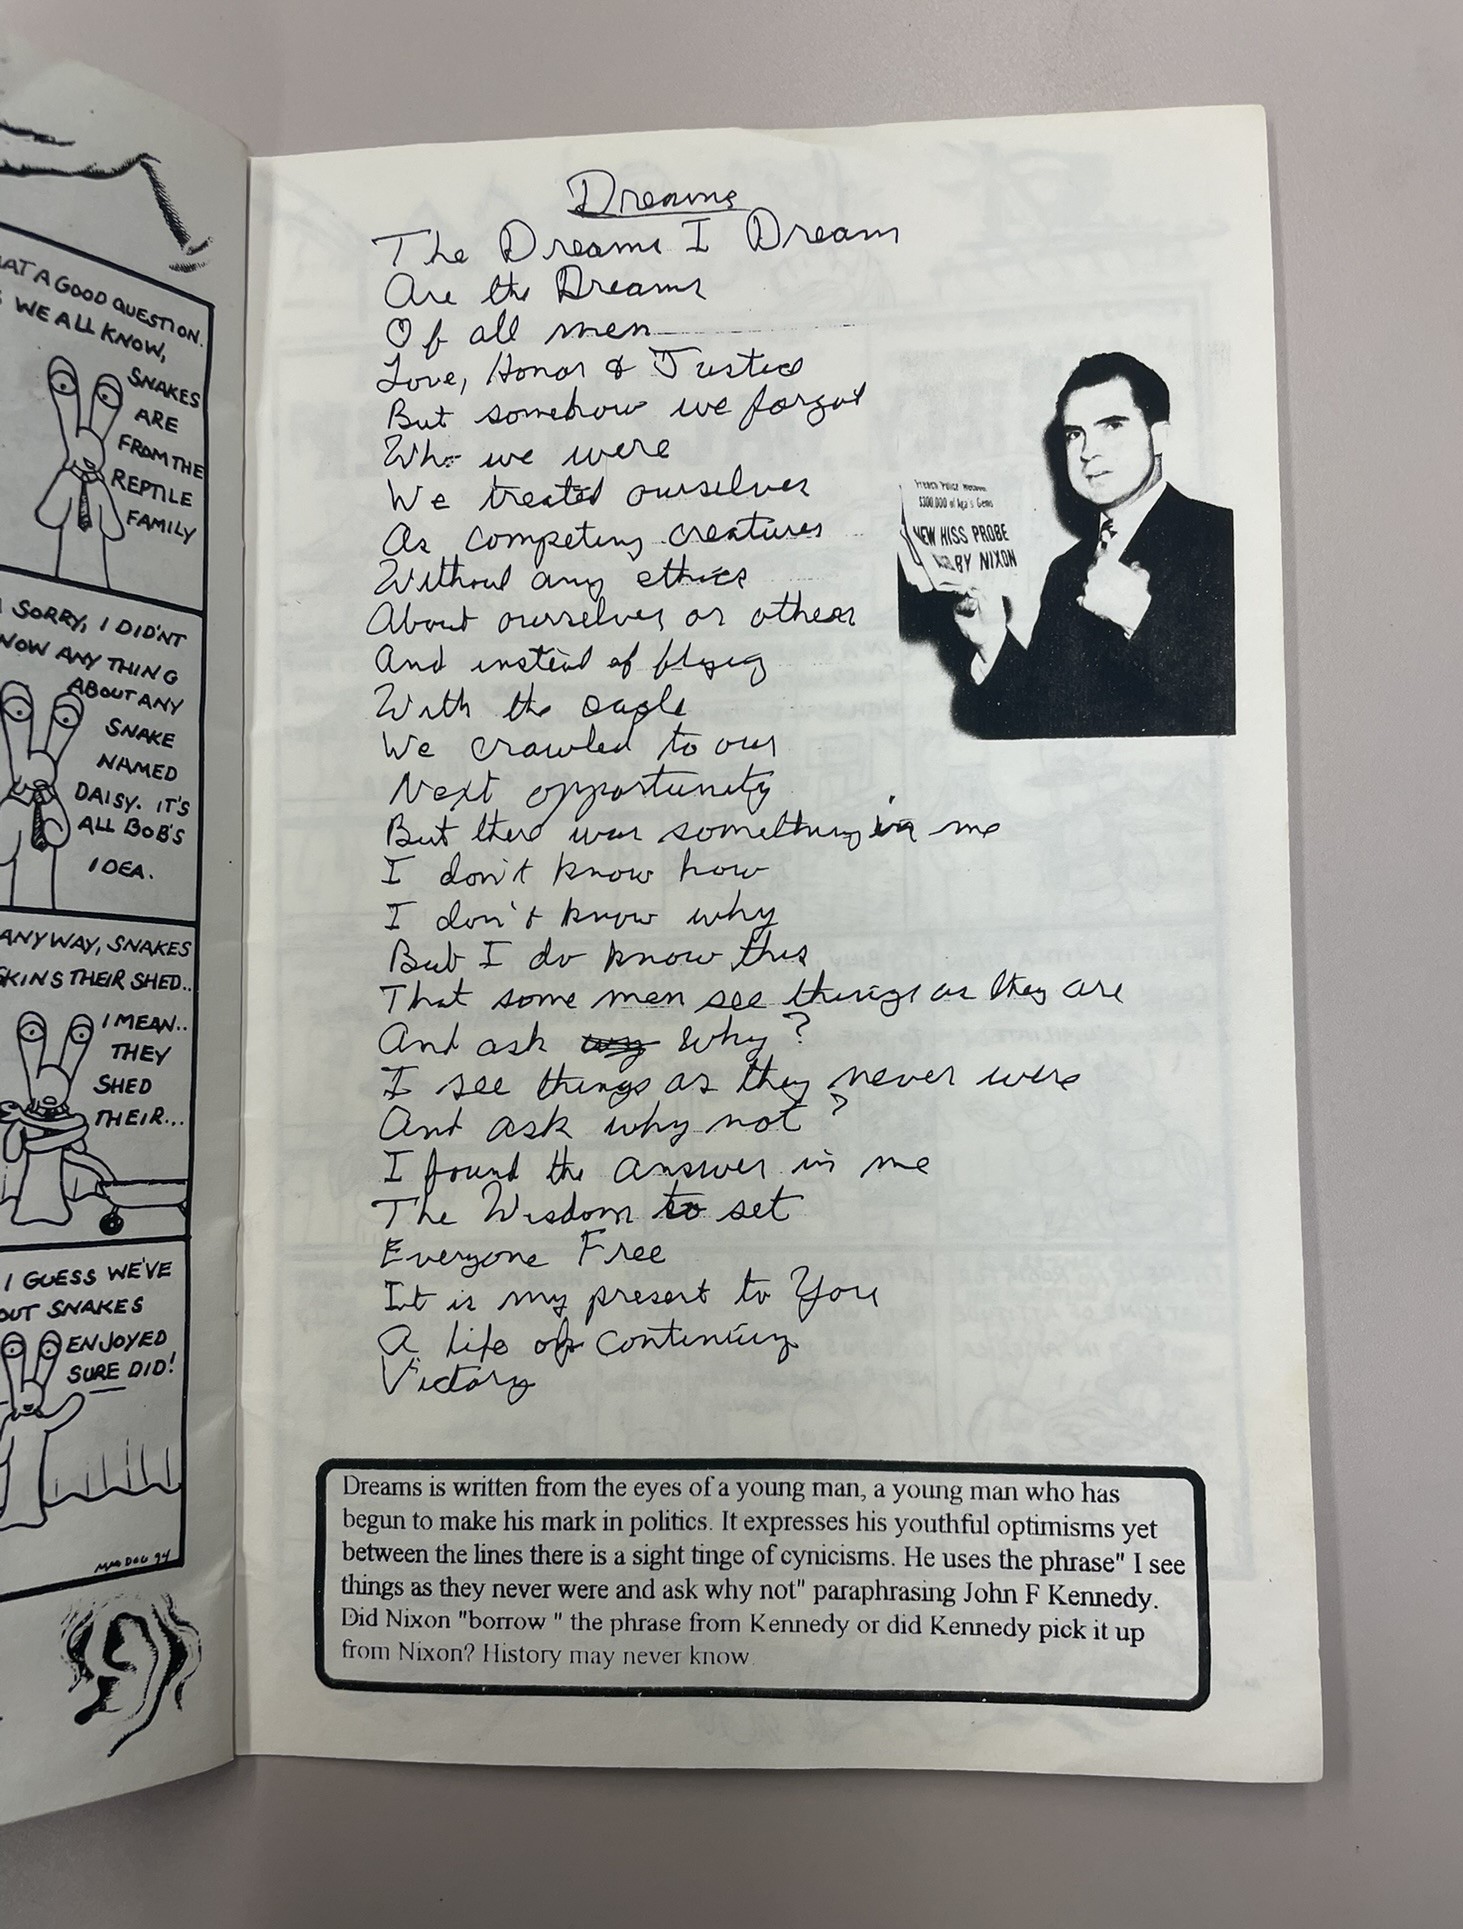 AT A GOOD QUESTION.
WE ALL KNOW,
SNAKES
ARE
FROM THE
REPTILE
FAMILY
SORRY, I DIDN'T
NOW ANY THING
ABOUT ANY
SNAKE
NAMED
DAISY. IT'S
ALL BOB'S
IDEA.
ANYWAY, SNAKES
SKINS THEIR SHED..
I MEAN..
THEY
SHED
THEIR...
I GUESS WE'VE
OUT SNAKES
ENJOYED
SURE DID!
MAD DOG 94
Dreams
The Dreams I Dream
Are the Dreams
Of all men
Love, Honor & Justice
But somehow we forgot
Who we were
We treated ourselves
As competing creatures
Without any ethics
About ourselves or others
And instead of flying
With the eagle
We crawled to our
Next opportunity
But there was something in me
I don't know how
I don't know why
But I do know this
That some men see things as they are
And ask why?
I see things as they never were
And ask why not?
I found the answer in me
The Wisdom to set
Everyone Free
It is my present to You
A life of continuing
Victory
$300,000 of Aga's Gems
NEW HISS PROBE
BY NIXON
Dreams is written from the eyes of a young man, a young man who has
begun to make his mark in politics. It expresses his youthful optimisms yet
between the lines there is a sight tinge of cynicisms. He uses the phrase" I see
things as they never were and ask why not" paraphrasing John F Kennedy.
Did Nixon "borrow " the phrase from Kennedy or did Kennedy pick it up
from Nixon? History may never know